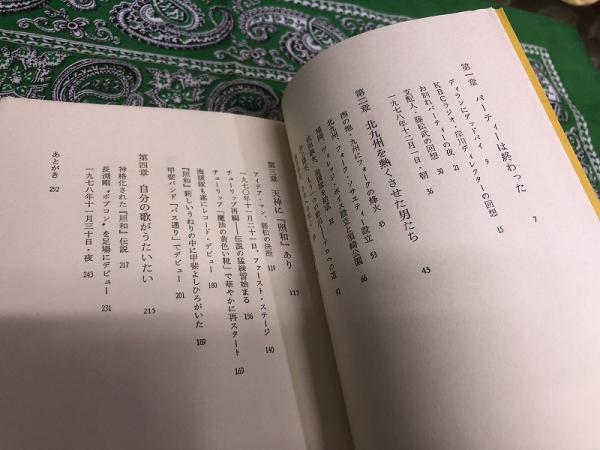 第一章 パーティーは終わった 7
ディランにグッドバイ 9
KBCラジオ・岸川ディレクターの回想 15
お別れパーティーの夜 21
支配人・藤松武の回想 30
一九七八年十二月一日・朝 36
第二章 北九州を熱くさせた男たち 43
西の地・九州にフォークの烽火
北九州、フォーク・ソサエティー設立 53
福岡、ヴィレッジ・ボイス設立と須崎公園 66
第三章 天神に『照和』あり 117
アイデア・マン、藤松の決断 119
一九七〇年十一月二十一日、ファースト・ステージ 140
チューリップ再編——伝説の猛練習始まる 156
チューリップ「魔法の黄色い靴」で華やかに再スタート 169
海援隊も遂にレコード・デビュー 180
『照和』新しいうねりの中に甲斐よしひろがいた 189
甲斐バンド「バス通り」でデビュー 201
第四章 自分の歌がうたいたい 215
神格化された『照和』伝説 217
長渕剛〝ポプコン〟を足場にデビュー 231
一九七八年十一月三十日・夜 243
あとがき 252